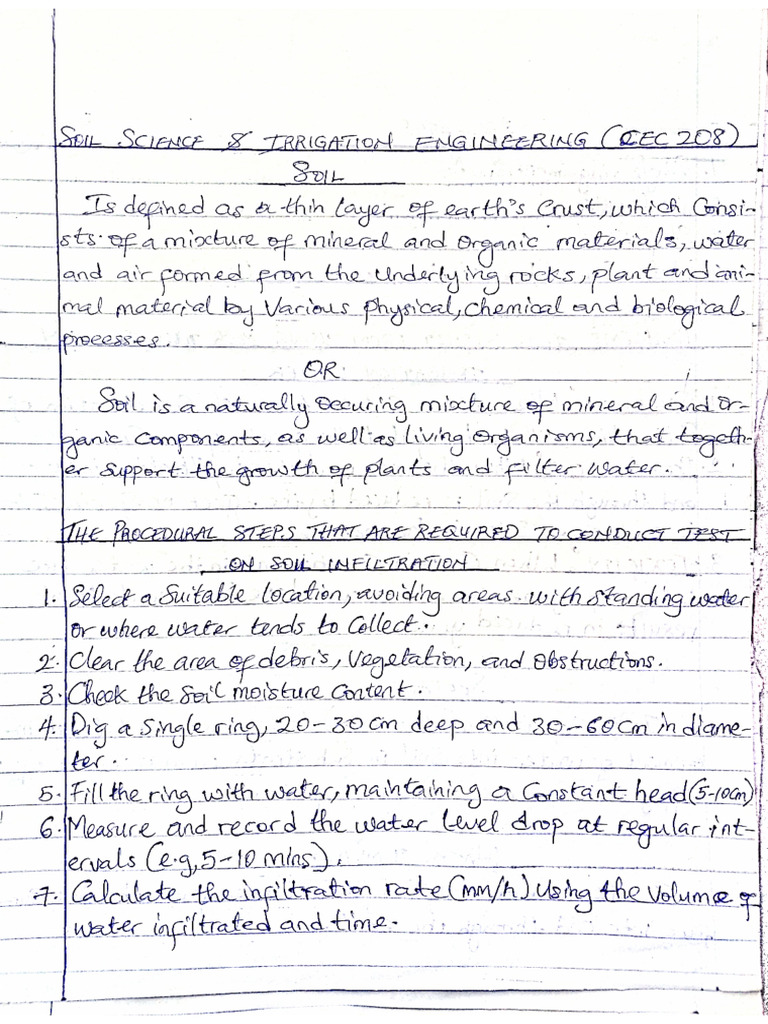 SOIL SCIENCE & IRRIGATION ENGINEERING (CEC 208)
SOIL
Is defined as a thin layer of earth's crust, which consi-
sts of a mixture of mineral and organic materials, water
and air formed from the underlying rocks, plant and ani-
mal material by various physical, chemical and biological
processes.
OR
Soil is a naturally occuring mixture of mineral and or-
ganic components, as well as living organisms, that togeth-
er support the growth of plants and filter water.
THE PROCEDURAL STEPS THAT ARE REQUIRED TO CONDUCT TEST
ON SOIL INFILTRATION
1. Select a suitable location, avoiding areas with standing water
or where water tends to collect.
2. Clear the area of debris, vegetation, and obstructions.
3. Check the soil moisture content.
4. Dig a single ring, 20-30cm deep and 30-60cm in diame-
ter.
5. Fill the ring with water, maintaining a constant head (5-10cm)
6. Measure and record the water level drop at regular int-
ervals (e.g, 5-10 mins).
7. Calculate the infiltration rate (mm/h) using the volume of
water infiltrated and time.